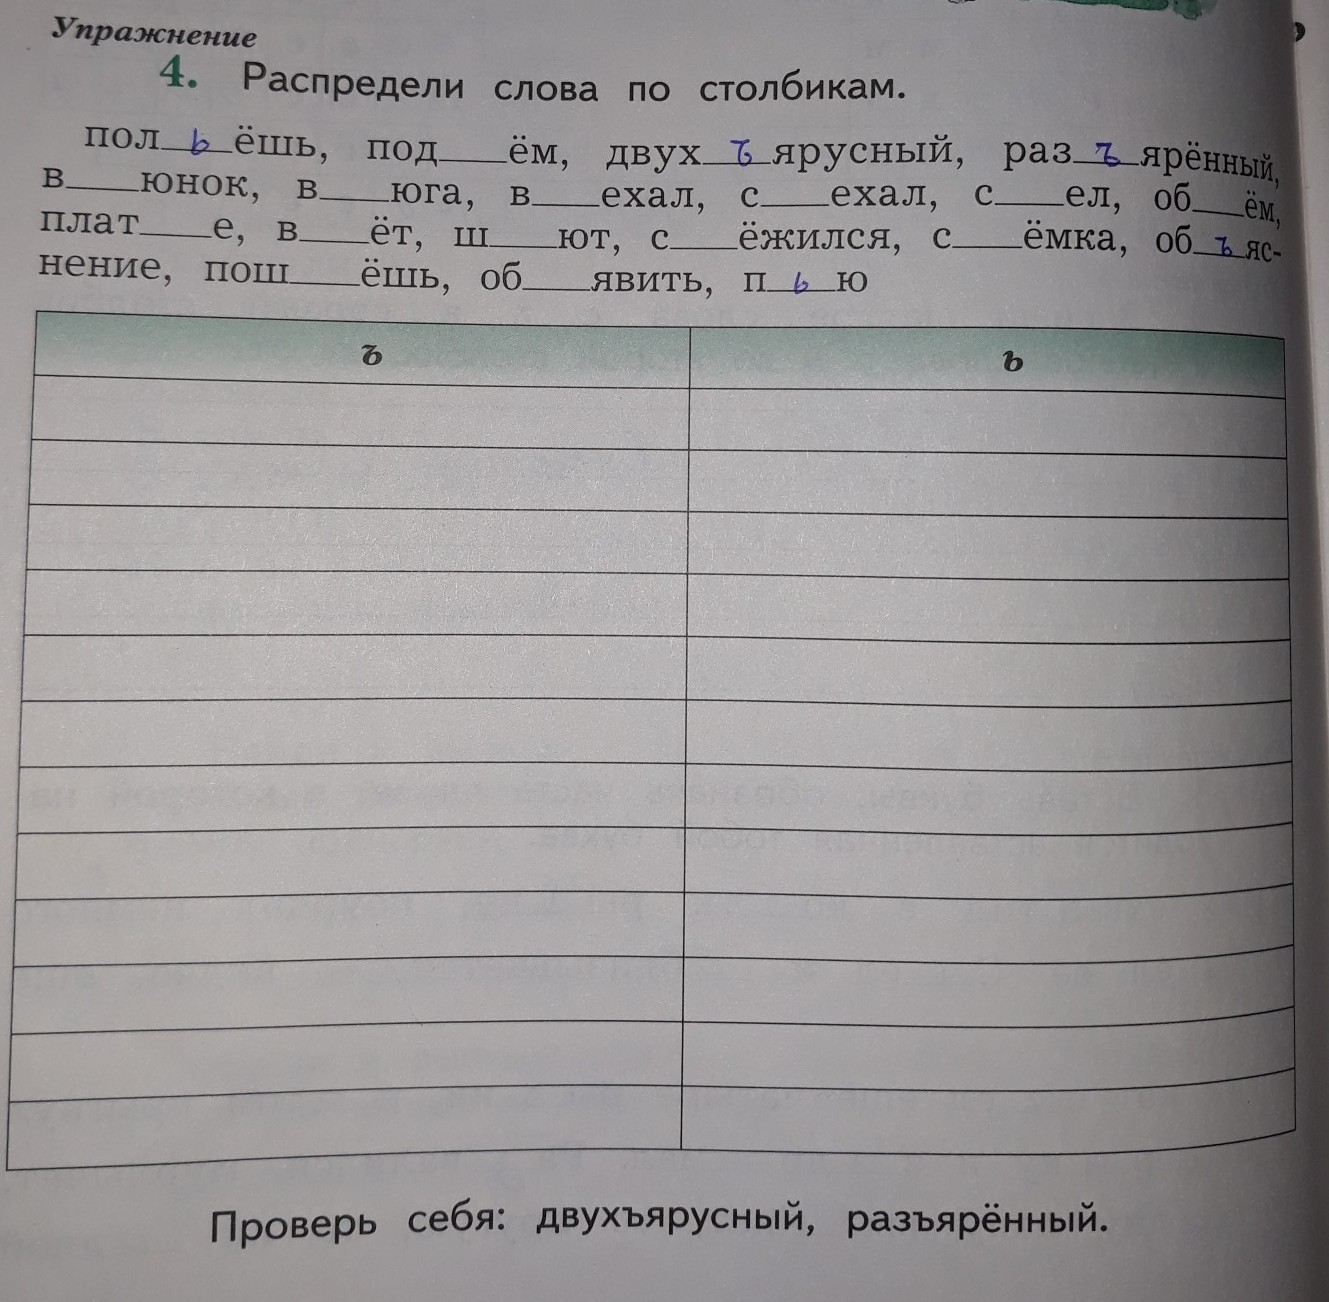 Упражнение
4. Распредели слова по столбикам.
пол_ь_ёшь, под___ём, двух_ъ_ярусный, раз_ъ_ярённый,
в___юнок, в___юга, в___ехал, с___ехал, с___ел, об___ём,
плат___е, в___ёт, ш___ют, с___ёжился, с___ёмка, об_ъ_яс-
нение, пош___ёшь, об___явить, п_ь_ю
ъ ь
Проверь себя: двухъярусный, разъярённый.